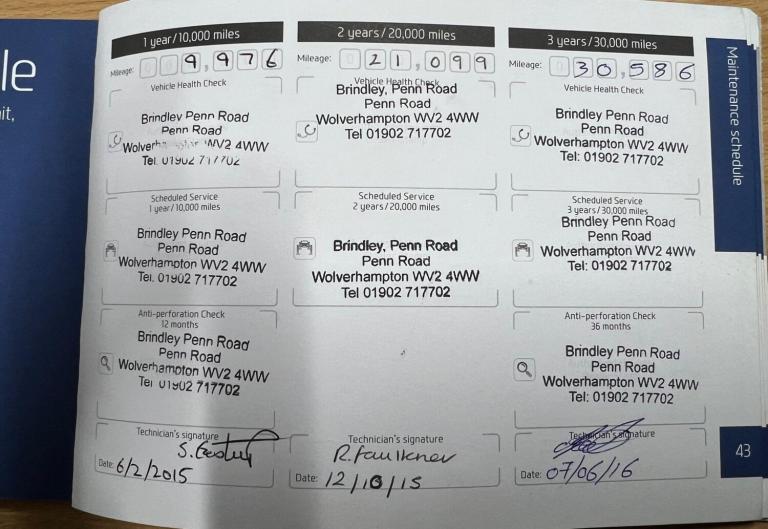 le
it,
1 year/10,000 miles
Mileage: 9,976
Vehicle Health Check
Brindley Penn Road
Penn Road
Wolverh WV2 4WW
Tel. 01902 717702
Scheduled Service
1 year/10,000 miles
Brindley Penn Road
Penn Road
Wolverhampton WV2 4WW
Tel. 01902 717702
Anti-perforation Check
12 months
Brindley Penn Road
Penn Road
Wolverhampton WV2 4WW
Tel 01902 717702
Technician's signature
Date: 6/2/2015
2 years/20,000 miles
Mileage: 021,099
Vehicle Health Check
Brindley, Penn Road
Penn Road
Wolverhampton WV2 4WW
Tel 01902 717702
Scheduled Service
2 years/20,000 miles
Brindley, Penn Road
Penn Road
Wolverhampton WV2 4WW
Tel 01902 717702
Technician's signature
R.Faulkner
Date: 12/10/15
3 years/30,000 miles
Mileage: 30,586
Vehicle Health Check
Brindley Penn Road
Penn Road
Wolverhampton WV2 4WW
Tel: 01902 717702
Scheduled Service
3 years/30,000 miles
Brindley Penn Road
Penn Road
Wolverhampton WV2 4WW
Tel: 01902 717702
Anti-perforation Check
36 months
Brindley Penn Road
Penn Road
Wolverhampton WV2 4WW
Tel: 01902 717702
Technician's signature
Date: 07/06/16
Maintenance schedule
43